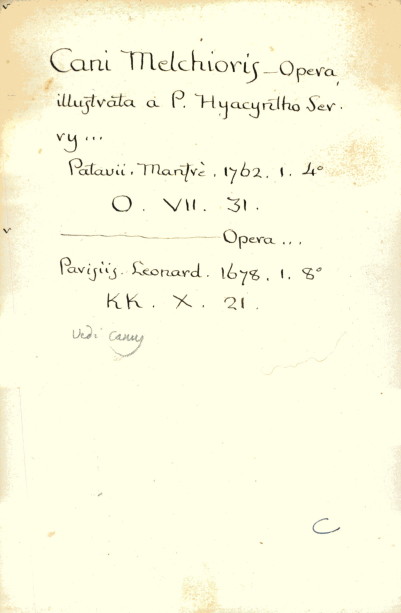 Cani Melchioris - Opera
illustrata a P. Hyacyntho Ser-
ry...
Patavii. Manfrè. 1762. 1. 4°
O. VII. 31.
——— Opera...
Parisiis. Leonard. 1678. 1. 8°
KK. X. 21.
Vedi Canus
C